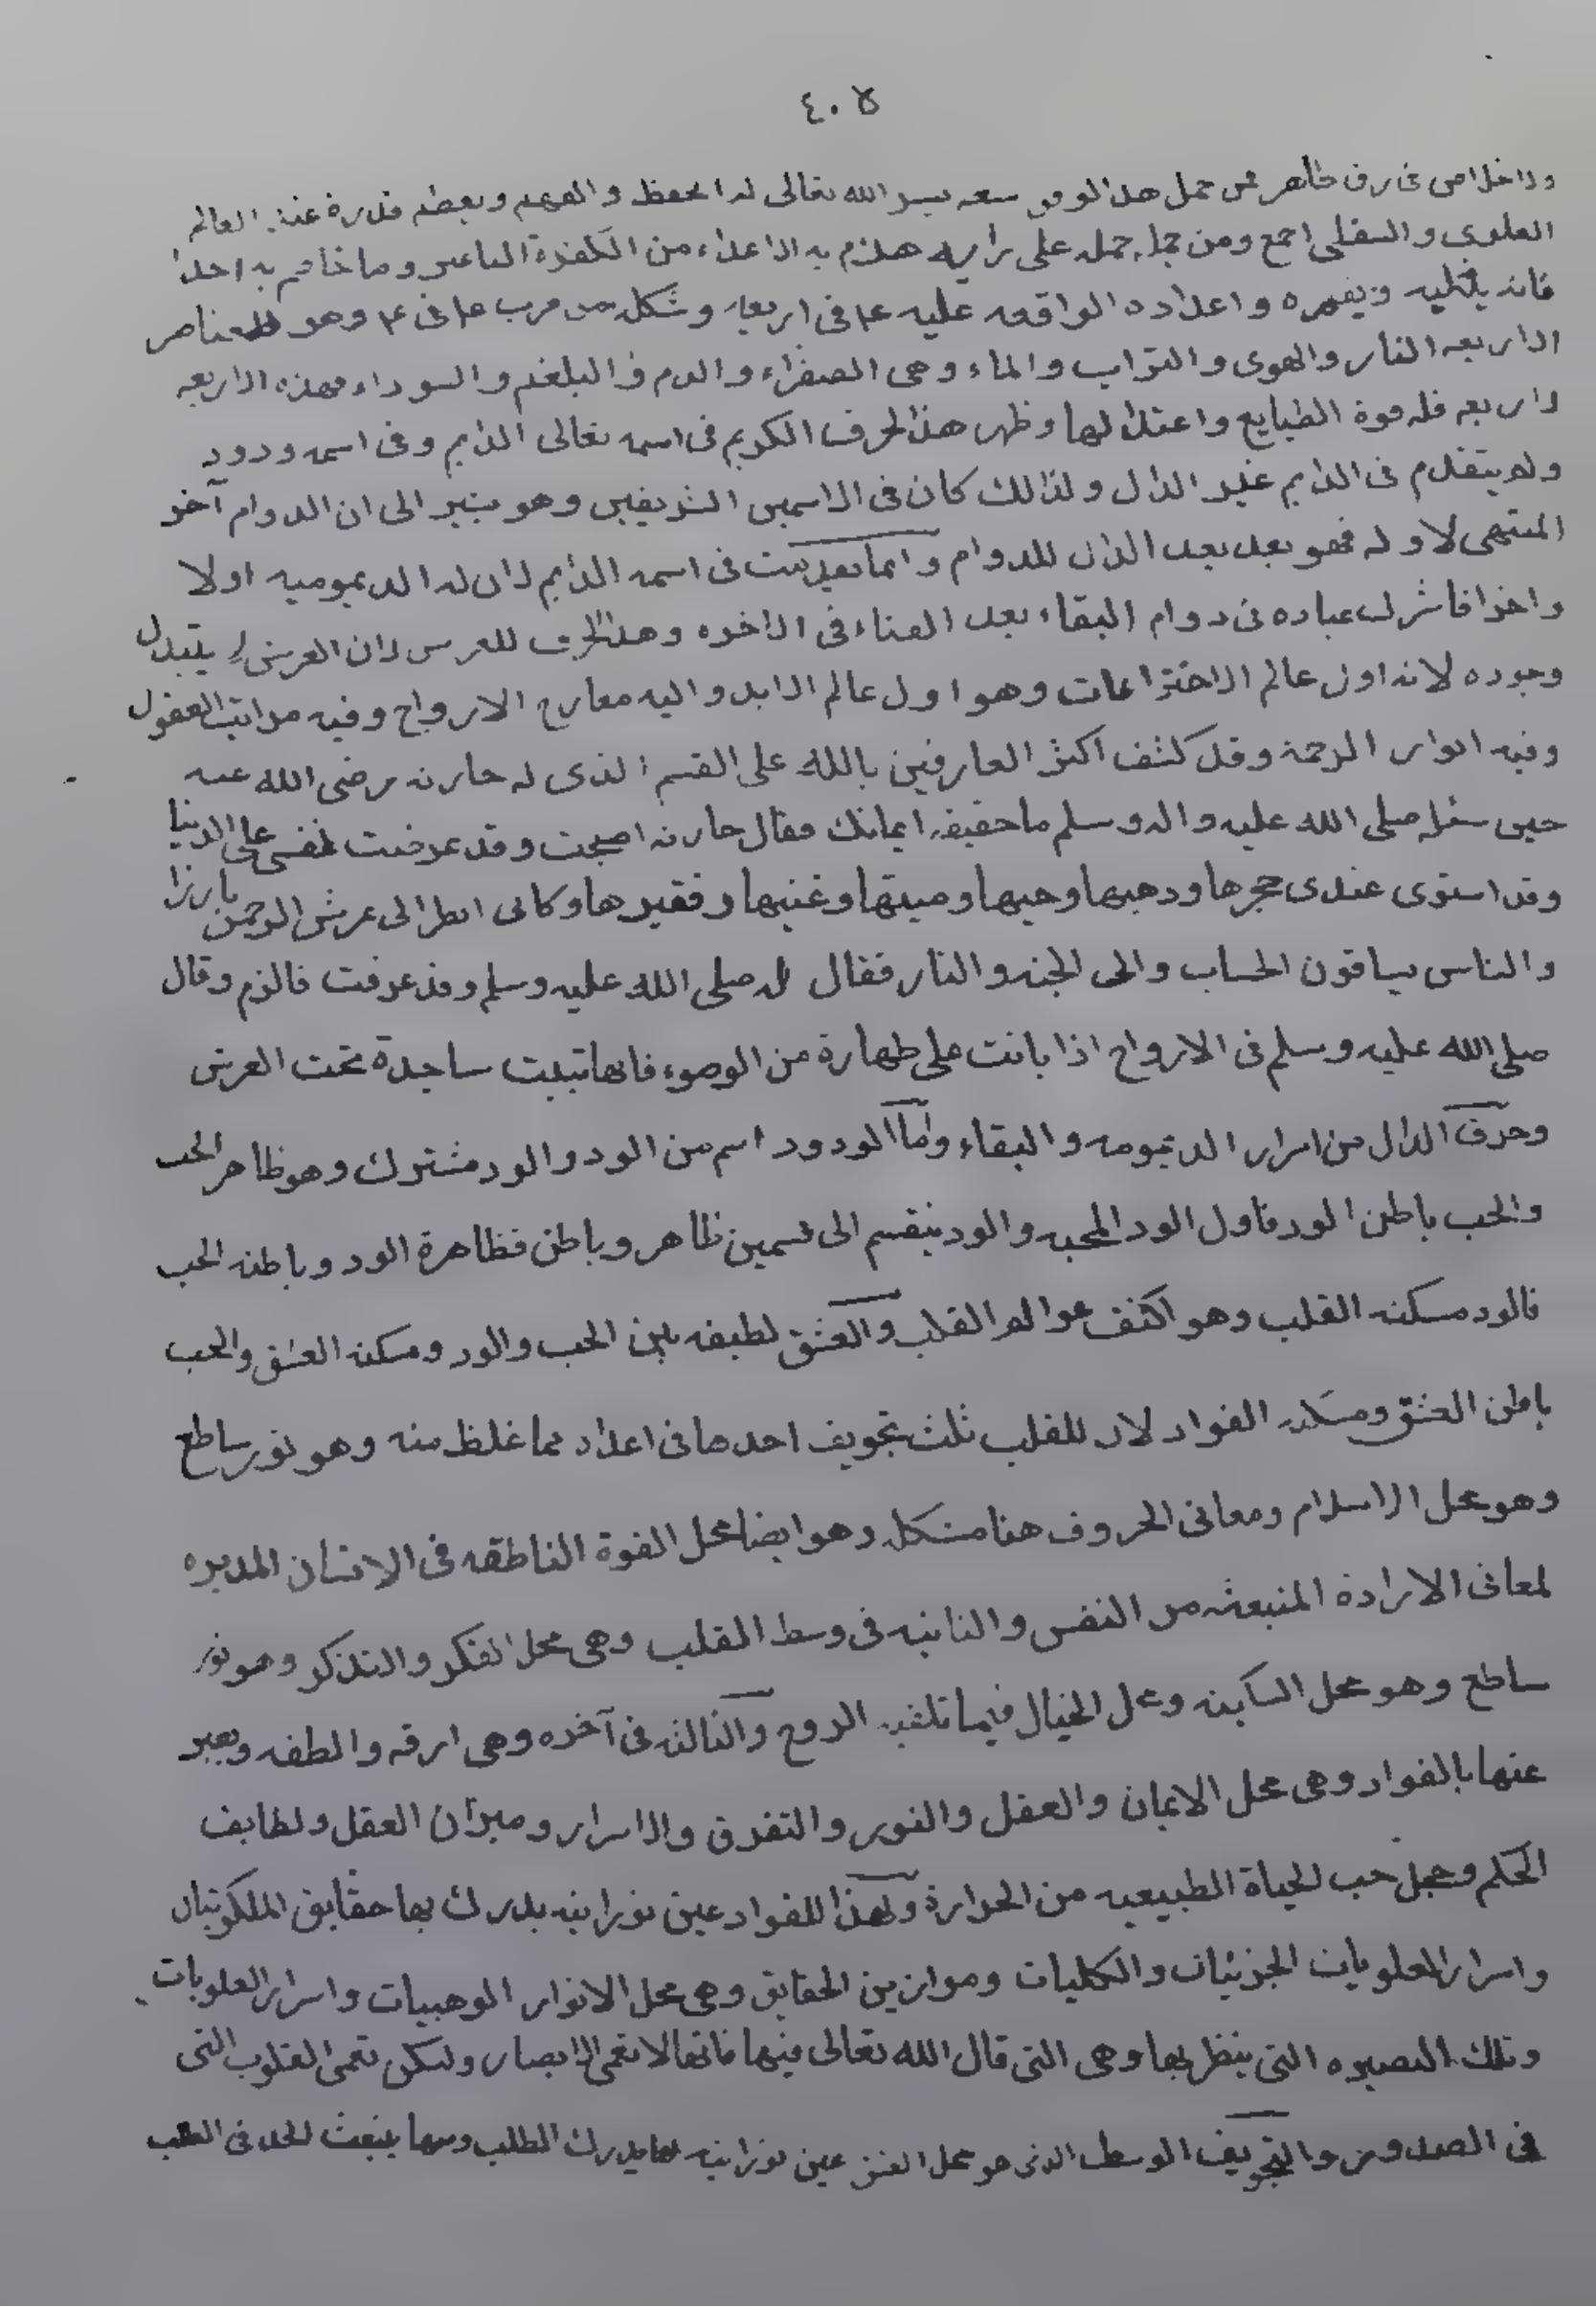 ٤٠٥
واخلاص فى رق طاهر من حمل هذا الوفق معه يسر الله تعالى له الحفظ والفهم ويعظم قدره عند العالم
العلوى والسفلى اجمع ومن حمله على رايه هزم به الاعداء من الكفرة الباغين وما خاصم به احدا
فانه يغلبه ويقهره واعداده الواقعه عليه ٤ فى اربعه وشكل مربع ٤ فى ٤ وهو للعناصر
الاربعه النار والهوى والتراب والماء وهى الصفراء والدم والبلغم والسوداء فهذه الاربعه
لاربعه فله قوة الطبايع واعتدالها وظهر هذا الحرف الكريم فى اسمه تعالى الدايم وفى اسمه ودود
ولم يتقدم فى الدايم غير الدال ولذلك كان فى الاسمين الشريفين وهو يشير الى ان الدوام آخر
المنتهى لاوله فهو بعد بعد الدال للدوام وانما تقدمت فى اسمه الدايم لان له الديموميه اولا
واخرا فاشرك عباده فى دوام البقاء بعد الفناء فى الاخره وهذا الحرف للعرس لان العرش لا يتبدل
وجوده لانه اول عالم الاختراعات وهو اول عالم الابد واليه معارج الارواح وفيه مراتب العقول
وفيه انوار الرحمة وقد كشف اكثر العارفين بالله على القسم الذى له حارثه رضى الله عنه
حين سئله صلى الله عليه واله وسلم ما حقيقه ايمانك فقال حارثه اصبحت وقد عرفت نفسى على الدنيا
وقد استوى عندى حجرها ودهبها وحيها وميتها وغنيها وفقيرها وكانى انظر الى عرش الرحمن بارزا
والناس يساقون الحساب والى الجنه والنار فقال له صلى الله عليه وسلم وقد عرفت فالزم وقال
صلى الله عليه وسلم فى الارواح اذا باتت على طهارة من الوضوء فانها تبيت ساجدة تحت العرش
وحرف الدال من اسرار الديمومه والبقاء واما الودود اسم من الود والود مشترك وهو ظاهر الحب
والحب باطن الود فاول الود المحبه والود ينقسم الى قسمين ظاهر وباطن فظاهرة الود وباطنه الحب
فالود مسكنه القلب وهو اكثف عوالم القلب والعشق لطيفه بين الحب والود ومسكنه العشق والحب
باطن العشق ومسكنه الفواد لان للقلب ثلث تجويف احدها فى اعلاه مما غلظ منه وهو نور ساطع
وهو محل الاسلام ومعانى الحروف هنا متشكل وهو ايضا محل القوة الناطقه فى الانسان المدبره
لمعانى الارادة المنبعثه من النفس والثانيه فى وسط القلب وهى محل الفكر والتذكر وهو نور
ساطع وهو محل السكينه ومحل الخيال فيما تلقيه الروح والثالثه فى آخره وهى ارقه والطفه ويعبر
عنها بالفواد وهى محل الايمان والعقل والنور والتفرق والاسرار وميزان العقل ولطايف
الحكم ومحل حب الحياة الطبيعيه من الحرارة ولهذا للفواد عين نورانيه يدرك بها حقايق الملكوتيات
واسرار العلويات الجزئيات والكليات وموازين الحقايق وهى محل الانوار الوهبيات واسرار العلويات
وتلك البصيره التى ينظر بها وهى التى قال الله تعالى فيها فانها لا تعمى الابصار ولكن تعمى القلوب التى
فى الصدور والتجويف الوسط الذى هو محل العشق عين نورانيه بها يدرك الطلب ومنها ينبعث الجد فى الطلب